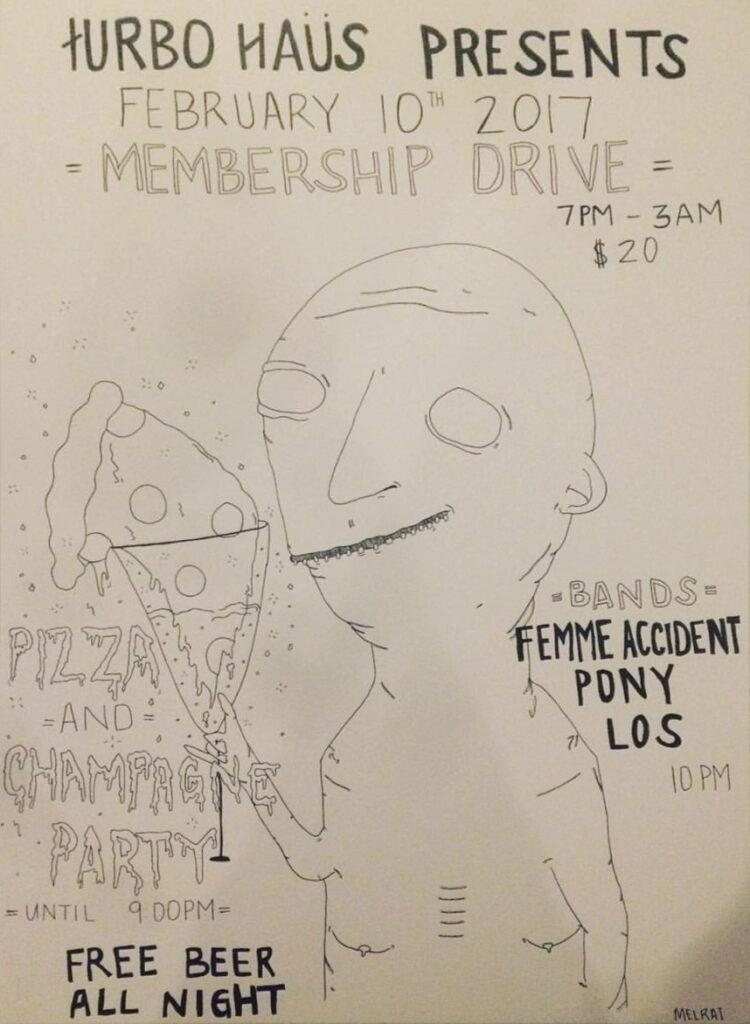 tURBO HAÜS PRESENTS
FEBRUARY 10TH 2017
= MEMBERSHIP DRIVE =
7PM - 3AM
$20
PIZZA
=AND=
CHAMPAGNE
PARTY
=UNTIL 9 00PM=
FREE BEER
ALL NIGHT
=BANDS=
FEMME ACCIDENT
PONY
LOS
10PM
MELRAT